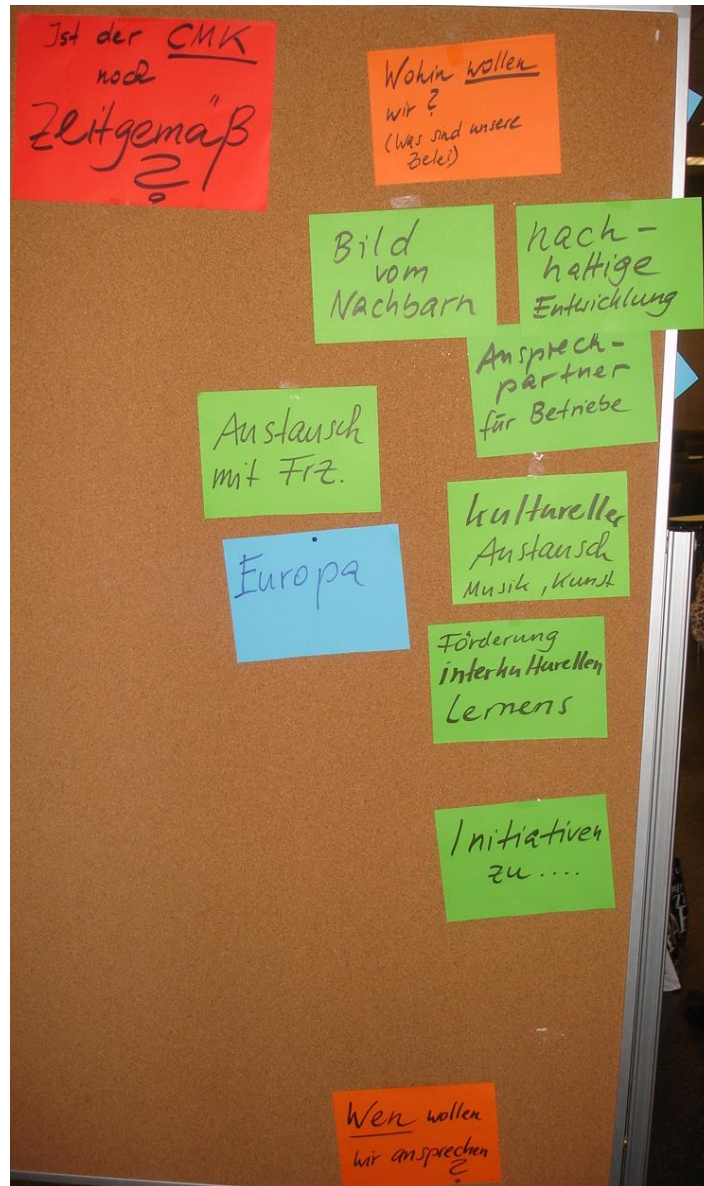 Ist der CMK
noch
Zeitgemäß
?
Wohin wollen
wir?
(Was sind unsere
Ziele?)
Bild
vom
Nachbarn
nach-
haltige
Entwicklung
Ansprech-
partner
für Betriebe
Austausch
mit Frz.
Europa
kultureller
Austausch
Musik, Kunst
Förderung
interkulturellen
Lernens
Initiativen
zu....
Wen wollen
wir ansprechen
?